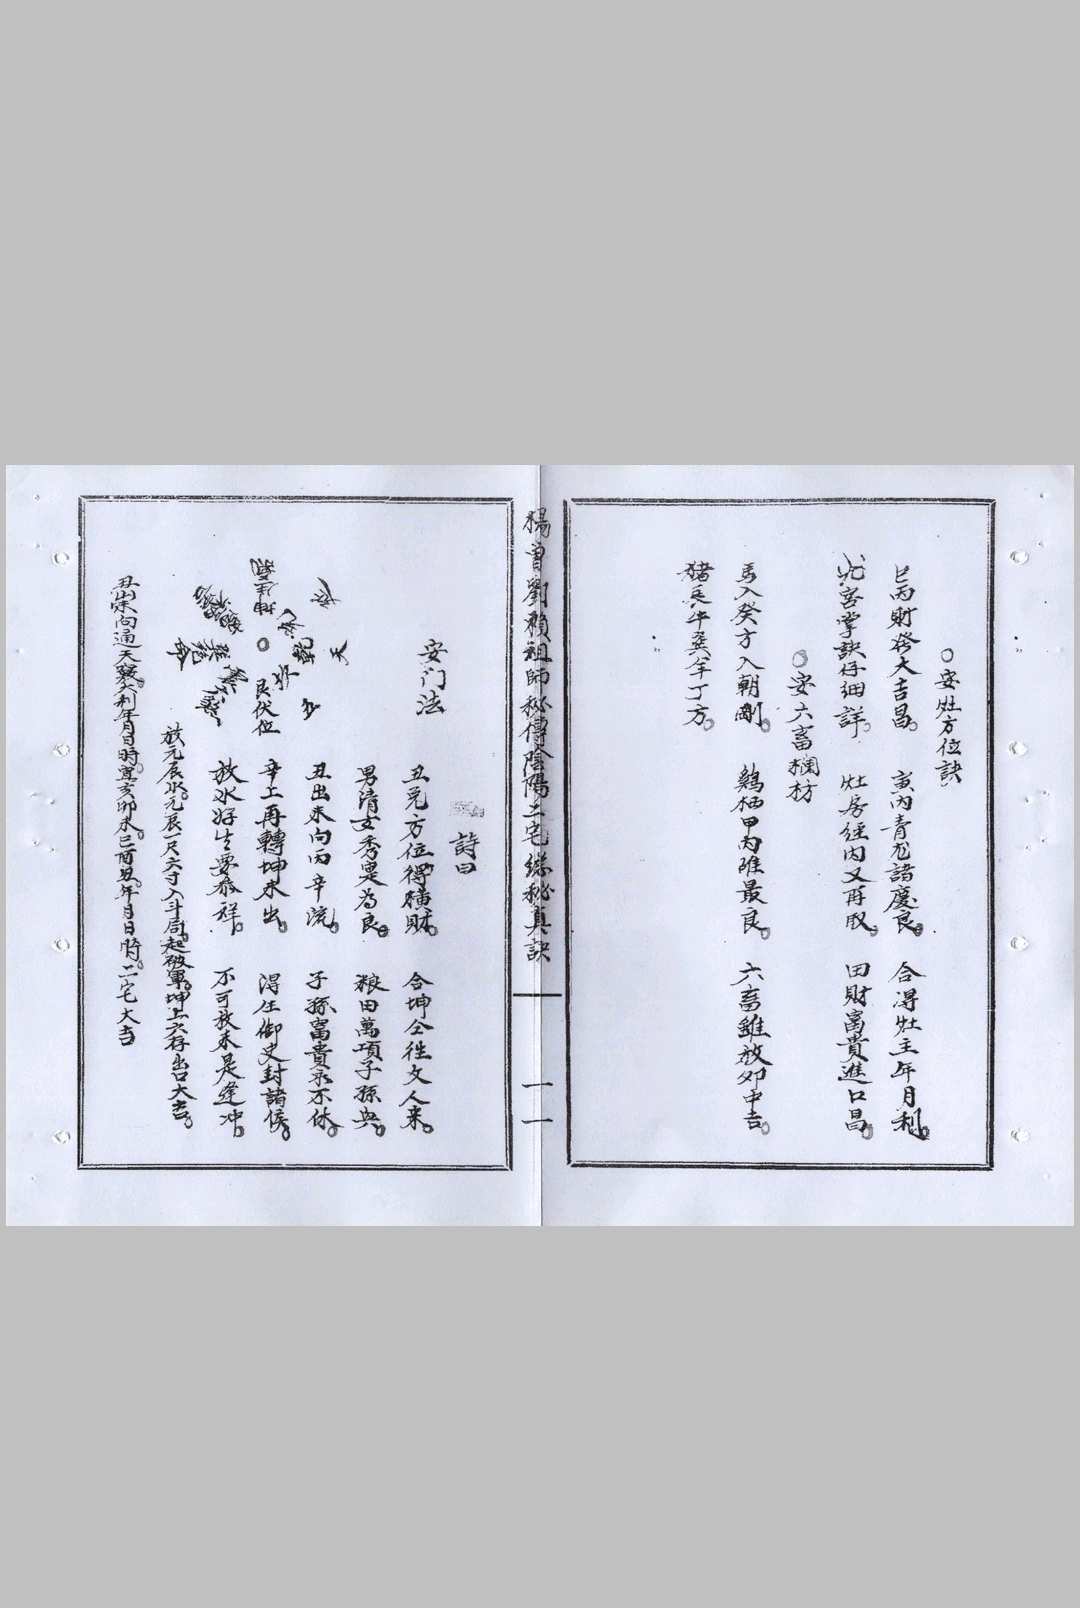 ○安灶方位訣
巳丙財發大吉昌。 寅內青龙諸慶良。 合得灶主年月利。
客掌訣仔細詳。 灶房經內又再取。 田財富貴進口昌。
○安六畜欄枋
馬入癸方入朝剛。 鷄栖甲丙唯最良。 六畜雖放卯中吉。
猪是牛巽羊丁方。
楊曾劉賴祖師秘傳陰陽二宅總秘真訣
一一
詩曰
安门法
丑兑方位得橫財。 合坤仝徃文人来。
男清女秀寔為良。 粮田萬項子孫兴。
丑出未向丙辛流。 子孫富貴永不休。
辛上再轉坤未出。 得任御史封諸侯。
放水好生要恭祥。 不可放未是逢冲。
天
乾
坤
艮伏位
○
放元辰水。元辰一尺六寸入斗局。起破軍。坤上六存出口大吉。
丑山未向通天竅。大利年月日時。寅亥卯未。巳酉丑。年月日時。二宅大吉